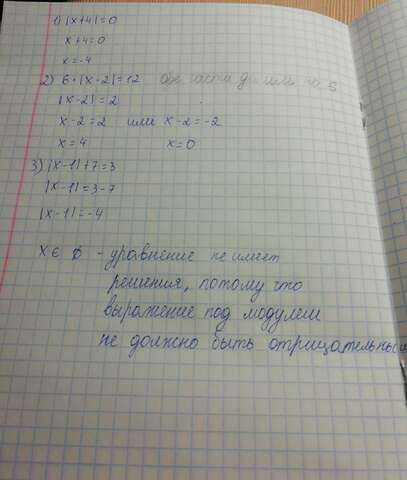 1) |x+4|=0
x+4=0
x=-4
2) 6·|x-2|=12 обе части делим на 6
|x-2|=2
x-2=2 или x-2=-2
x=4 x=0
3) |x-1|+7=3
|x-1|=3-7
|x-1|=-4
x ∈ ∅ - уравнение не имеет
решения, потому что
выражение под модулем
не должно быть отрицательным